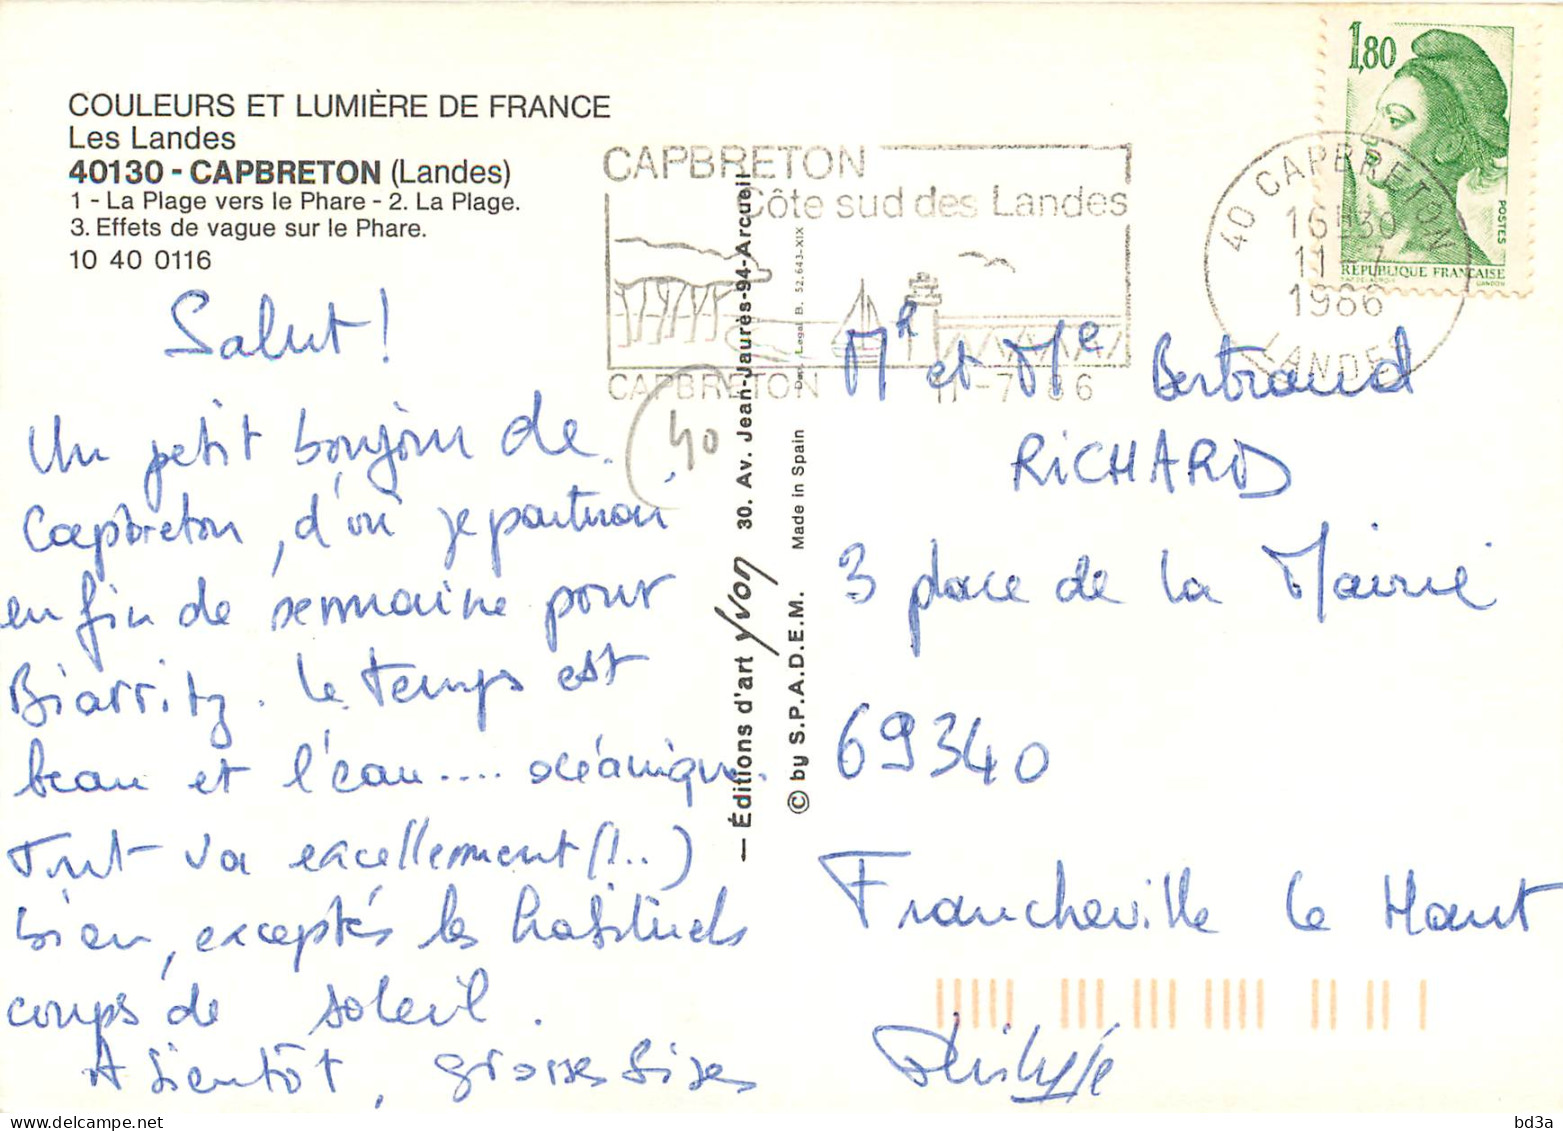 COULEURS ET LUMIÈRE DE FRANCE
Les Landes
40130 - CAPBRETON (Landes)
1 - La Plage vers le Phare - 2. La Plage.
3. Effets de vague sur le Phare.
10 40 0116
Salut !
Un petit bonjour de
Capbreton, d'où je partirai
en fin de semaine pour
Biarritz. Le temps est
beau et l'eau.... océanique.
Tout va excellement (!..)
bien, exceptés les habituels
coups de soleil.
A bientôt, grosses bises
Philippe
40
— Éditions d'art yvon 30. Av. Jean-Jaurès-94-Arcueil
© by S.P.A.D.E.M. Made in Spain Dep. Legal B. 52.643-XIX
CAPBRETON
Côte sud des Landes
CAPBRETON 11-7 86
40 CAPBRETON
16H30
11-7
1986
LANDES
1,80
POSTES
REPUBLIQUE FRANCAISE
GANDON
Mr et Me Bertrand
RICHARD
3 place de la Mairie
69340
Francheville le Haut
bd3a